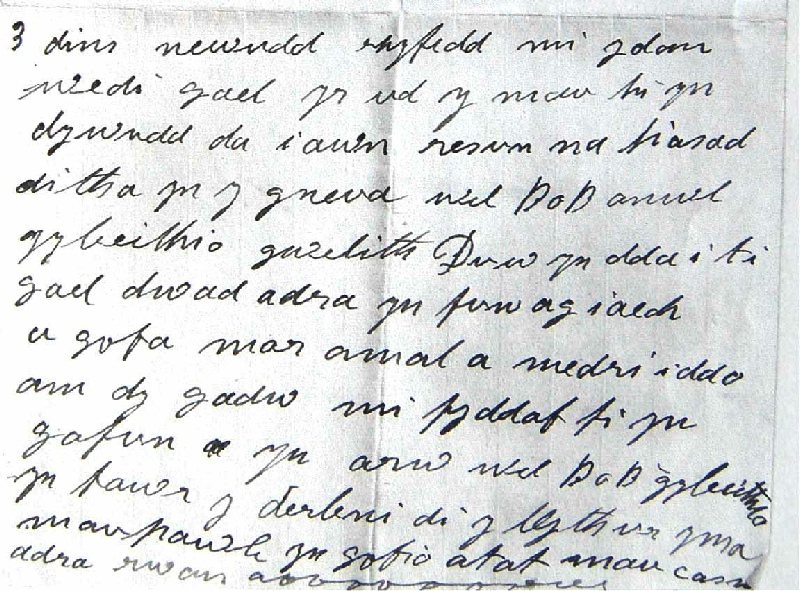 3 dins newudd rhyfedd mi ydan
wedi gael yr ud y mau hi yn
dywudd da iawn resun na biasad
ditha yn y gneua wel BoB anwel
gybeithio gwelith Duw yn dda i ti
gael dwad adra yn fuw ag iach
a gofa mar amal a medri iddo
am dy gadw mi fyddaf fi yn
gofun yn arw wel BoB gybeithio
yn fawr y derbeni di y llythur yma
mau pawb yn gofio atat mau
adra rwan